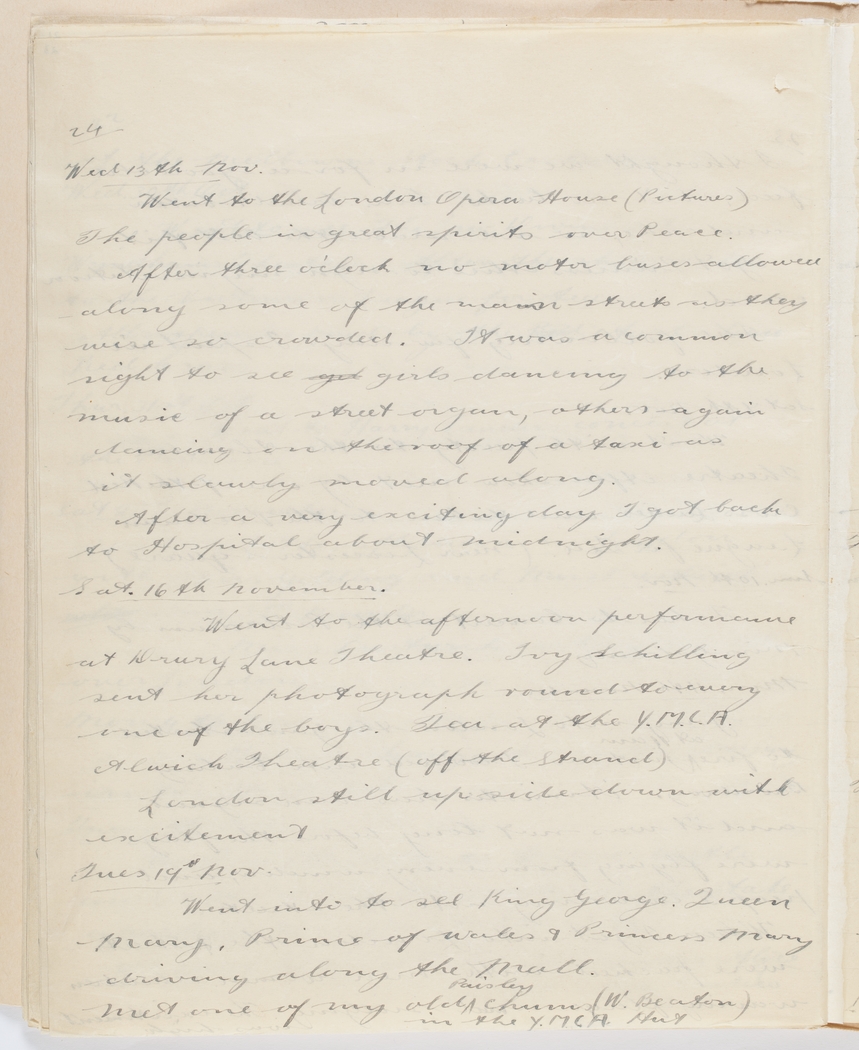 24
Wed 13th Nov.
Went to the London Opera House (Pictures)
The people in great spirits over Peace.
After three o'clock no motor buses allowed
along some of the main streets as they
were so crowded. It was a common
sight to see girls dancing to the
music of a street organ, others again
dancing on the roof of a taxi as
it slowly moved along.
After a very exciting day I got back
to Hospital about midnight.
Sat. 16th November.
Went to the afternoon performance
at Drury Lane Theatre. Ivy Schilling
sent her photograph round to every
one of the boys. Tea at the Y.M.C.A.
Alwich Theatre (off the Strand)
London still up side down with
excitement
Tues 19th Nov.
Went into to see King George. Queen
Mary, Prince of Wales & Princess Mary
driving along the Mall.
Met one of my old Paisley chums (W. Beaton)
in the Y.M.C.A. Hut